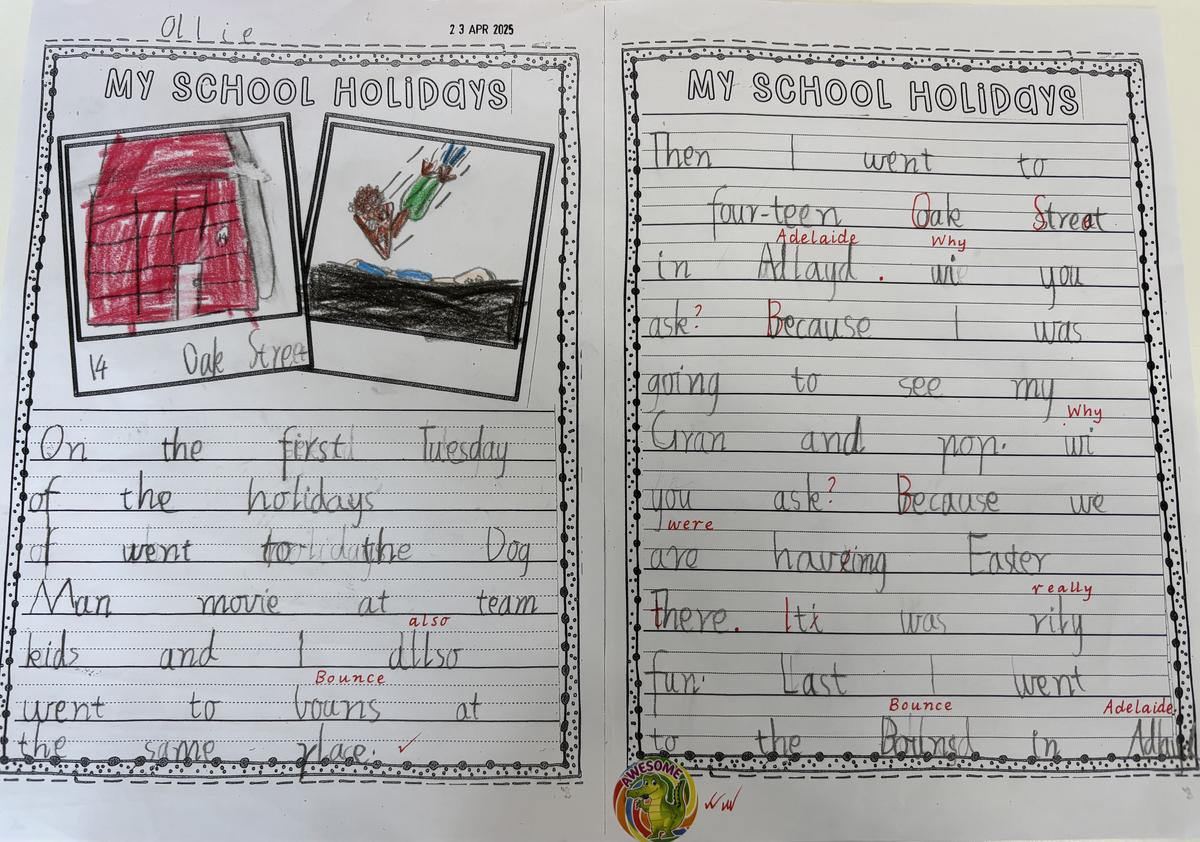 Ollie
23 APR 2025
MY SCHOOL HOLIDAYS
14 Oak Street
On the first Tuesday
of the holidays
went to the Dog
Man movie at team
also
kids and I allso
Bounce
went to bouns at
the same place. ✓
MY SCHOOL HOLIDAYS
Then I went to
four-teen Oak Street
Adelaide Why
in Adlayd . wi you
ask? Because I was
going to see my
Why
Gran and pop. wi
you ask? Because we
were
are haveing Easter
really
there. It was rily
fun. Last I went
Bounce Adelaide
to the in
AWESOME